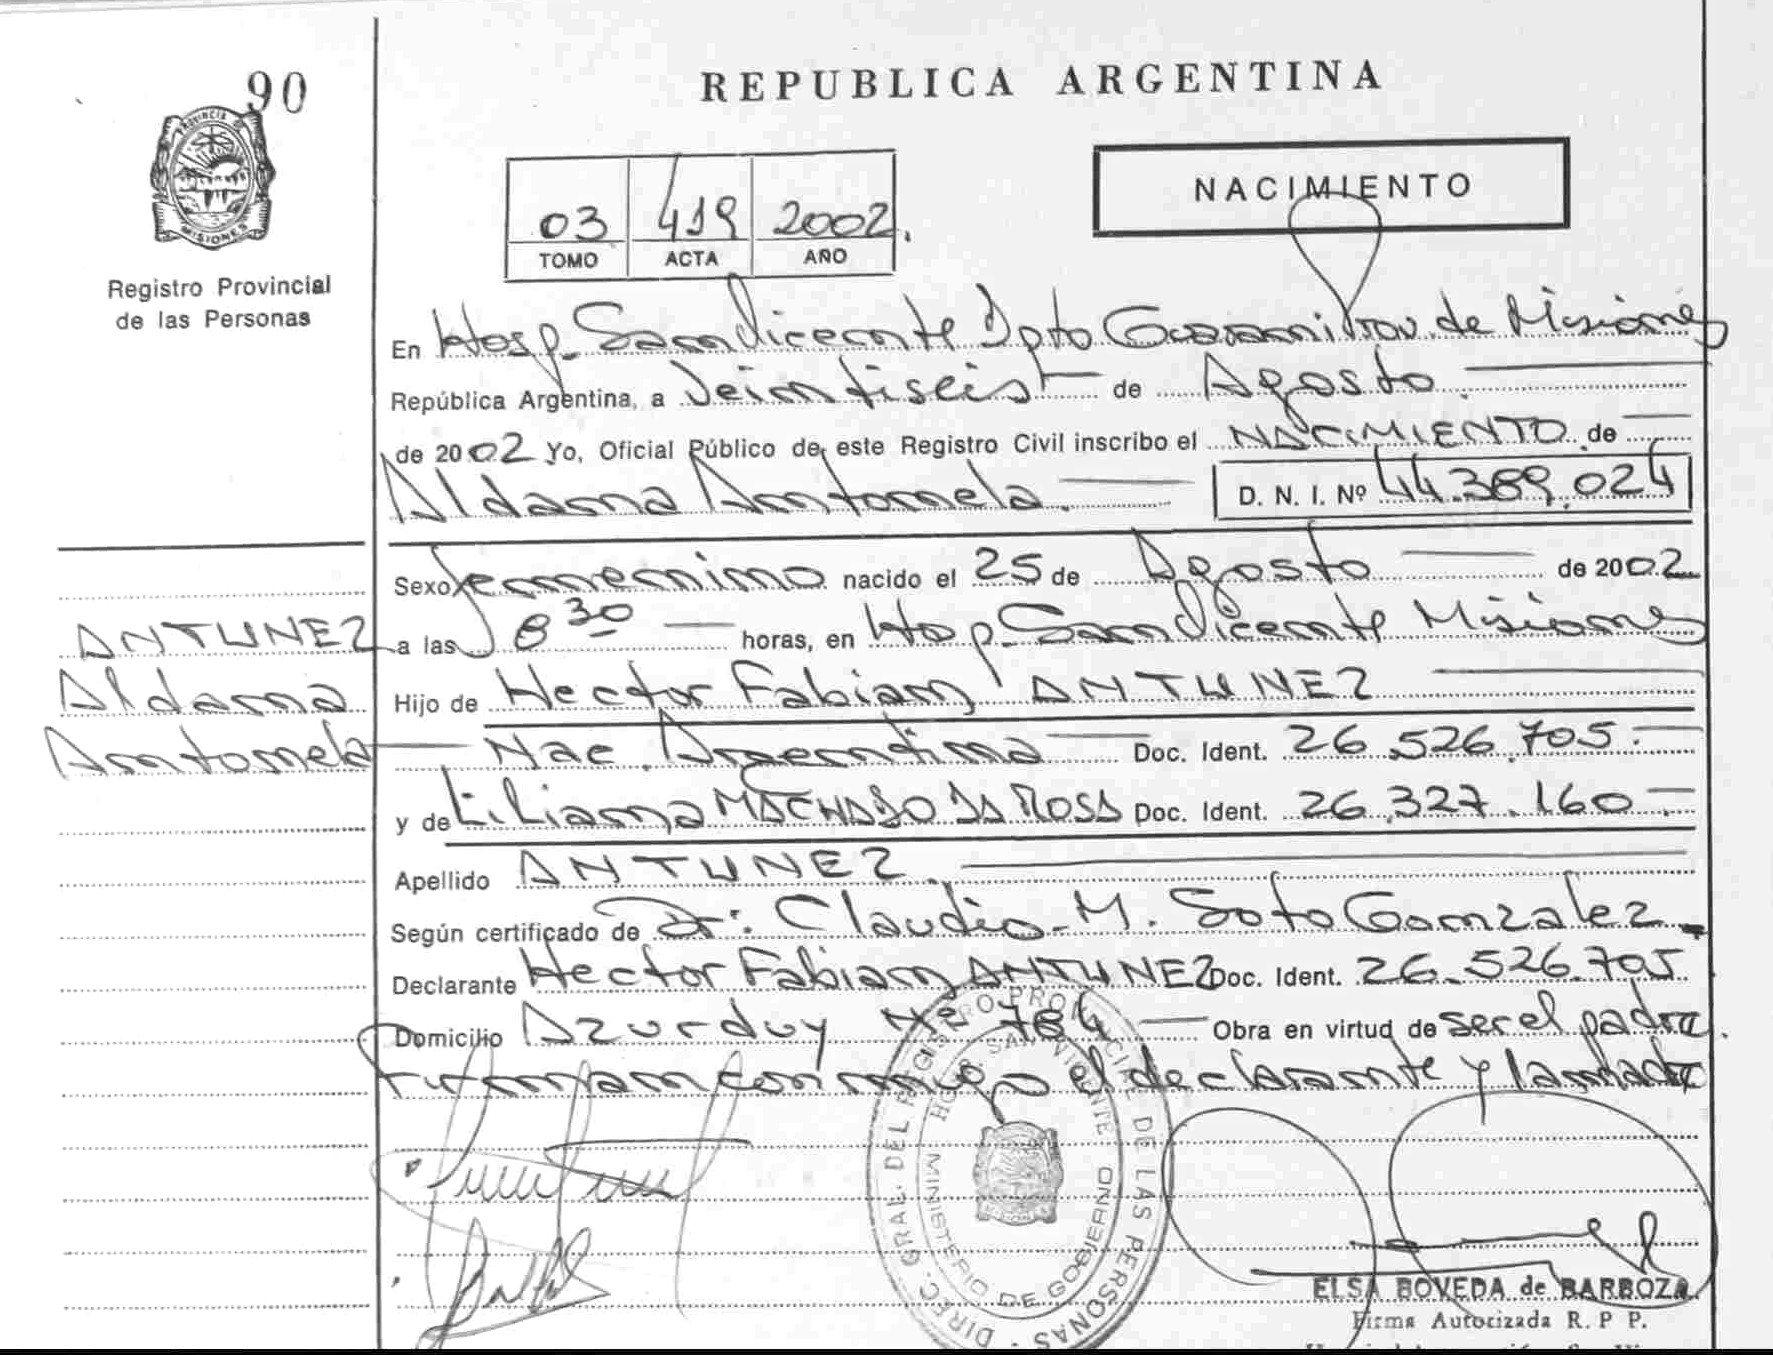 90
REPUBLICA ARGENTINA
PROVINCIA DE
MISIONES
Registro Provincial
de las Personas
NACIMIENTO
03 419 2002.
TOMO ACTA AÑO
En Hosp. San Vicente Dpto Guarani Prov. de Misiones
República Argentina, a Veintiseis de Agosto.
de 2002 Yo, Oficial Público de este Registro Civil inscribo el NACIMIENTO de
Aldana Antonela. D. N. I. Nº 44.389.024
Sexo femenino nacido el 25 de Agosto de 2002
a las 8 30 horas, en Hosp. San Vicente Misiones
Hijo de Hector Fabian ANTUNEZ
Nac. Argentina Doc. Ident. 26.526.705.
y de Liliana MACHADO DA ROSA Doc. Ident. 26.327.160.
Apellido ANTUNEZ.
Según certificado de Dr: Claudio M. Soto Gonzalez
Declarante Hector Fabian ANTUNEZ Doc. Ident. 26.526.705
Domicilio Azurduy Nº 784 Obra en virtud de ser el padre.
Firman conmigo el declarante y la madre
ANTUNEZ
Aldana
Antonela
DIREC. GRAL. DEL REGISTRO PROVINCIAL DE LAS PERSONAS
HOSP. SAN VICENTE
MINISTERIO DE GOBIERNO
MISIONES
ELSA BOVEDA de BARBOZA
Firma Autorizada R. P P.